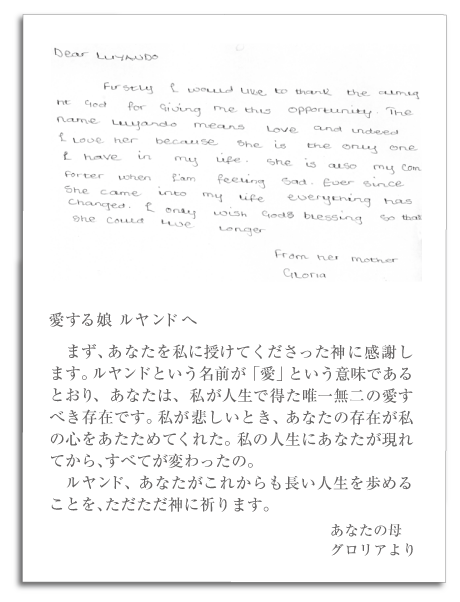 Dear LUYANDO
Firstly I would like to thank the almig
ht God for Giving me this opportunity. The
name Luyando means Love and indeed
I Love her because she is the only one
I have in my life. She is also my com
forter when I am feeling sad. Ever since
She came into my life everything has
changed. I only wish God's blessing so that
she could live longer
From her mother
Gloria
愛する娘 ルヤンドへ
まず、あなたを私に授けてくださった神に感謝し
ます。ルヤンドという名前が「愛」という意味である
とおり、あなたは、私が人生で得た唯一無二の愛す
べき存在です。私が悲しいとき、あなたの存在が私
の心をあたためてくれた。私の人生にあなたが現れ
てから、すべてが変わったの。
ルヤンド、あなたがこれからも長い人生を歩める
ことを、ただただ神に祈ります。
あなたの母
グロリアより